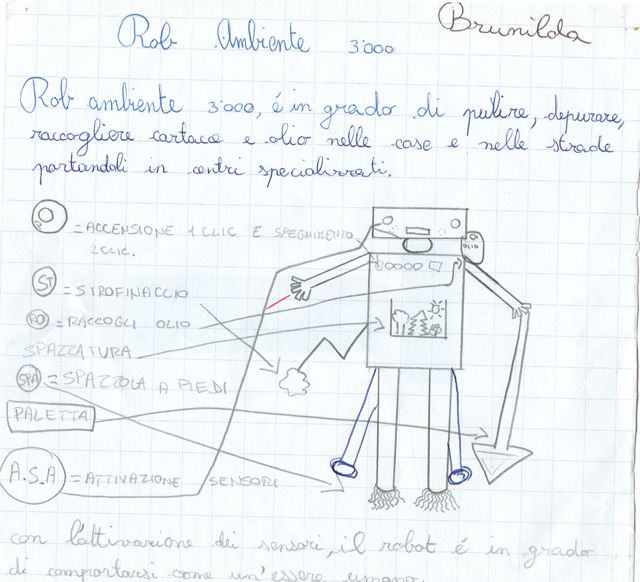 Brunilda
Rob Ambiente 3'000
Rob ambiente 3'000, é in grado di pulire, depurare,
raccogliere cartacce e olio nelle case e nelle strade
portandoli in centri specializzati.
O = ACCENSIONE 1 CLIC E SPEGNIMENTO
2CLIC.
ST = STROFINACCIO
RO = RACCOGLI OLIO
SPAZZATURA
SPA = SPAZZOLA A PIEDI
PALETTA
A.S.A = ATTIVAZIONE SENSORI
OLIO
con l'attivazione dei sensori, il robot é in grado
di comportarsi come un'essere umano.